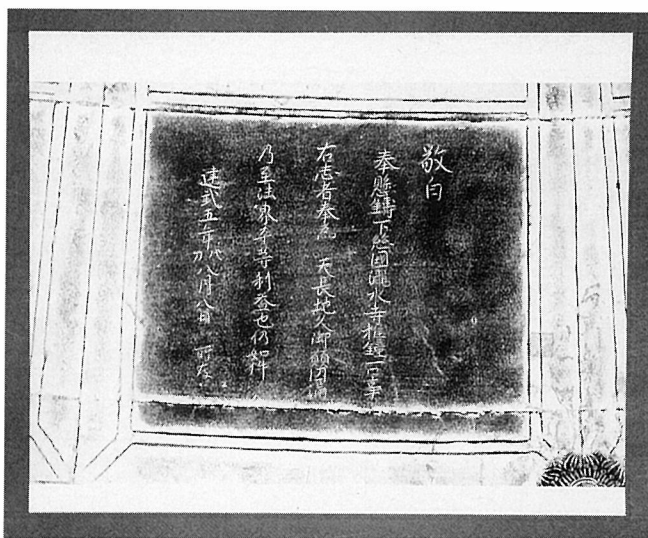 敬白
奉懸鑄下総国瀧水寺推鐘一口事
右志者奉為 天長地久御願円満
乃至法界平等利益也仍如件
建武五年戊刁八月八日